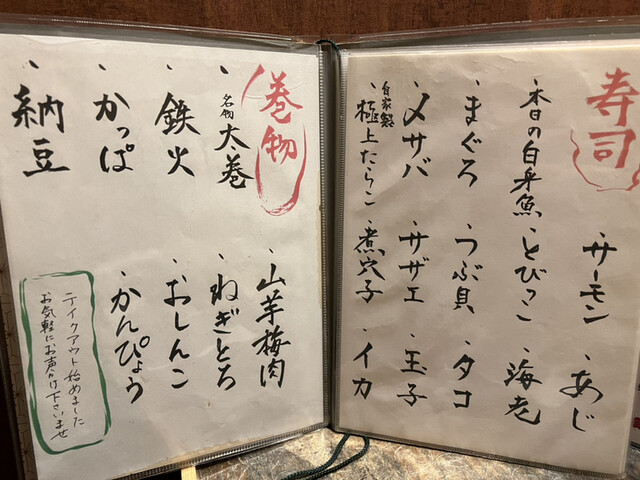 寿司
・サーモン ・あじ
・本日の白身魚 ・とびっこ ・海老
・まぐろ ・つぶ貝 ・タコ
・〆サバ ・サザエ ・玉子
自家製
・極上たらこ ・煮穴子 ・イカ
巻物
・山芋梅肉
・名物 太巻 ・ねぎとろ
・鉄火 ・おしんこ
・かっぱ ・かんぴょう
・納豆
テイクアウト始めました
お気軽にお声かけ下さいませ